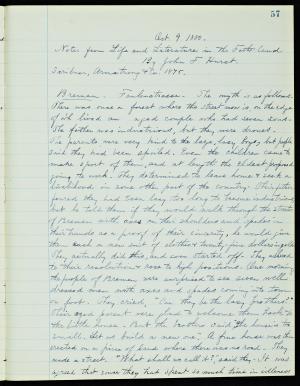 57
Oct. 9 1880.
Notes from Life and Literature in the Father land
By John F. Hurst.
Scribner, Armstrong & Co. 1875.
Bremen. The myth is as follows.
There was once a forest where the street now is on the edge
of it lived an aged couple who had seven sons.
The father was industrious, but they were drones.
The parents were very kind to the large, lazy boys, but people
said they had been spoiled. Even the children came to
make sport of them, and at length the eldest proposed
going to work. They determined to leave home & seek a
livelihood in some other part of the country. Their father
feared they had been lazy too long to become industrious,
but he told them if they would walk through the streets
of Bremen with axes on their shoulders and spades in
their hands as a proof of their sincerity, he would give
them each a new suit of clothes & twenty-five dollars in gold.
They actually did this, and soon started off. They adhered
to their resolution & rose to high positions. One morning
the people of Bremen were surprised to see seven well
dressed men with axes and spades coming into town
on foot. They cried, "Can they be the lazy brothers?"
Their aged parents were glad to welcome them back to
the little house. But the brothers said "The house is too
small, let us build a new one." A fine house was then
erected on a piece of land where there was no road. They
made a street. "What shall we call it?", said they. It was
agreed that since they had spent so much time in idleness